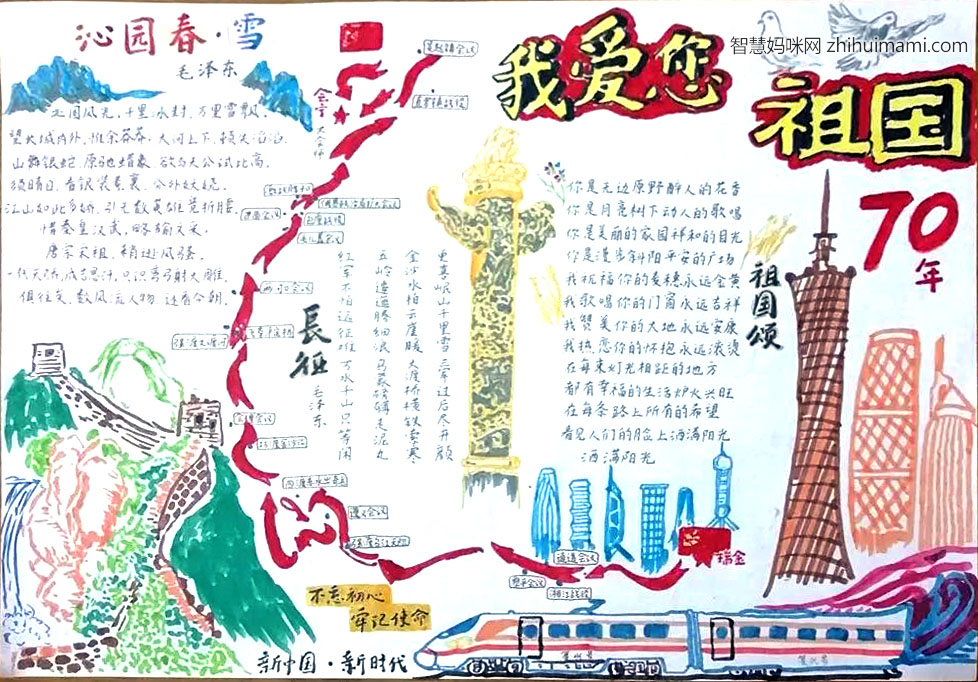 沁园春·雪
毛泽东
北国风光，千里冰封，万里雪飘。
望长城内外，惟余莽莽，大河上下，顿失滔滔。
山舞银蛇，原驰蜡象，欲与天公试比高。
须晴日，看银装素裹，分外妖娆。
江山如此多娇，引无数英雄竞折腰。
惜秦皇汉武，略输文采。
唐宗宋祖，稍逊风骚。
一代天骄，成吉思汗，只识弯弓射大雕。
俱往矣，数风流人物，还看今朝。
智慧妈咪网 zhihuimami.com
我爱您
祖国
70
年
会宁
长征
毛泽东
红军不怕远征难 万水千山只等闲
五岭逶迤腾细浪 乌蒙磅礴走泥丸
金沙水拍云崖暖 大渡桥横铁索寒
更喜岷山千里雪 三军过后尽开颜
祖国颂
你是无边原野醉人的花香
你是月亮树下动人的歌唱
你是美丽的家园祥和的目光
你是漫步斜阳平安的广场
我祝福你的麦穗永远金黄
我歌唱你的门窗永远吉祥
我赞美你的大地永远安康
我热恋你的怀抱永远滚烫
在每束灯光相距的地方
都有幸福的生活炉火兴旺
在每条路上所有的希望
看见人们的脸上洒满阳光
洒满阳光
两河口会议
飞夺泸定桥
强渡大渡河
会理会议
巧渡金沙江
四渡赤水出奇兵
遵义会议
通道会议
黎平会议
湘江战役
瑞金
不忘初心
牢记使命
新中国·新时代
复兴号
复兴号